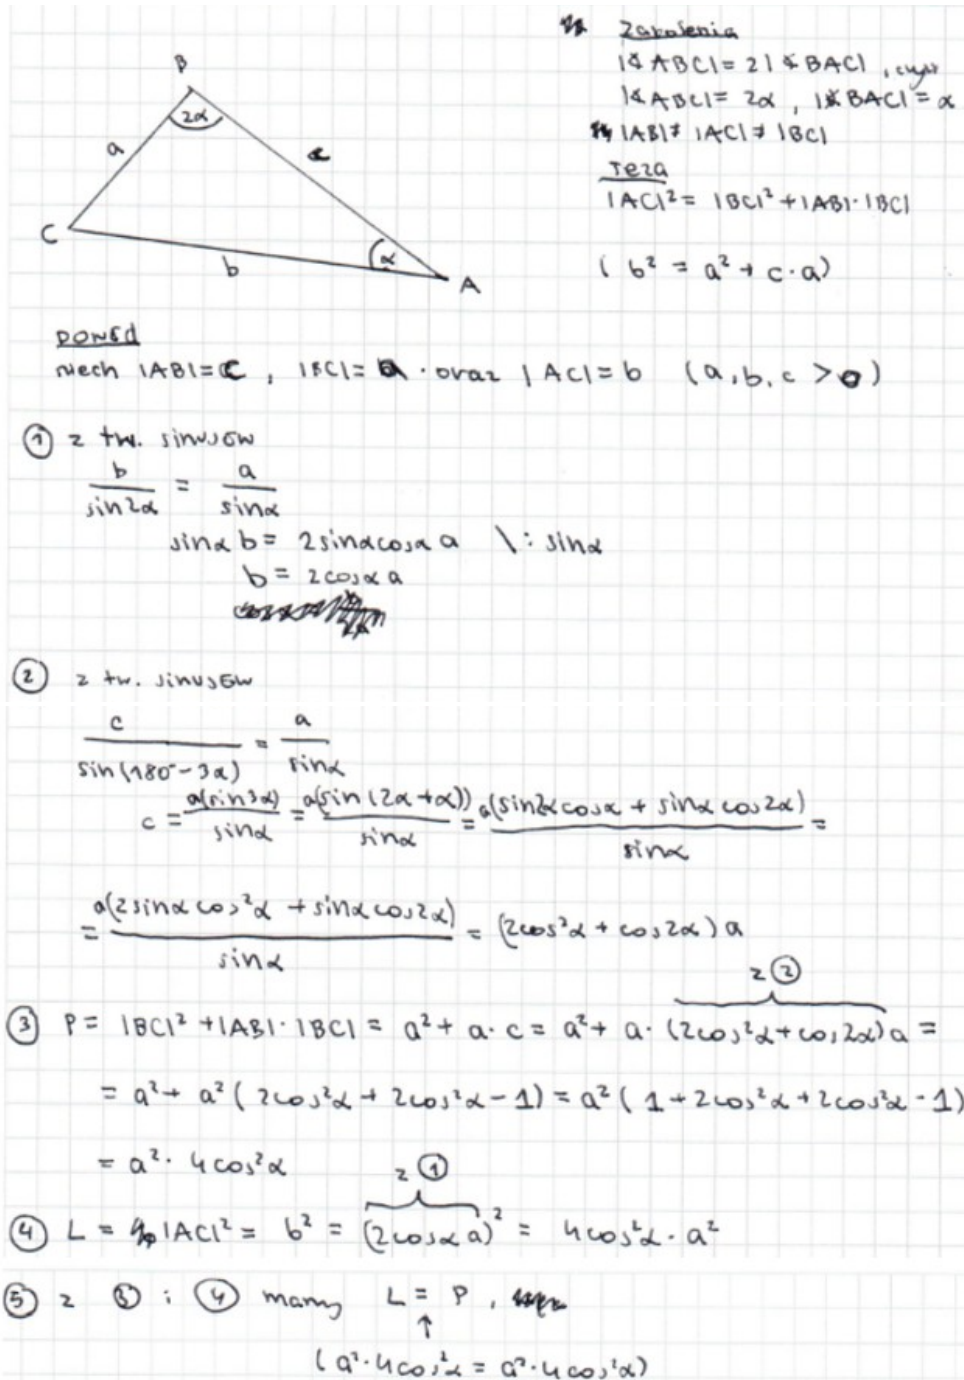 Założenia
|∢ABC| = 2|∢BAC|, czyli
|∢ABC| = 2α, |∢BAC| = α
|AB| ≠ |AC| ≠ |BC|
Teza
|AC|² = |BC|² + |AB|·|BC|
(b² = a² + c·a)
B
2α
a
c
C
b
α
A
DOWÓD
niech |AB| = c, |BC| = a · oraz |AC| = b (a, b, c > 0)
① z tw. sinusów
b/sin2α = a/sinα
sinα b = 2sinαcosα a \: sinα
b = 2cosα a
② z tw. sinusów
c/sin(180° - 3α) = a/sinα
c = a(sin3α)/sinα = a(sin(2α+α))/sinα = a(sin2αcosα + sinαcos2α)/sinα =
= a(2sinαcos²α + sinαcos2α)/sinα = (2cos²α + cos2α)a
z ②
③ P = |BC|² + |AB|·|BC| = a² + a·c = a² + a·(2cos²α + cos2α)a =
= a² + a²(2cos²α + 2cos²α - 1) = a²(1 + 2cos²α + 2cos²α - 1)
= a²·4cos²α
z ①
④ L = |AC|² = b² = (2cosα a)² = 4cos²α·a²
⑤ z ③ i ④ mamy L = P,
↑
(a²·4cos²α = a²·4cos²α)